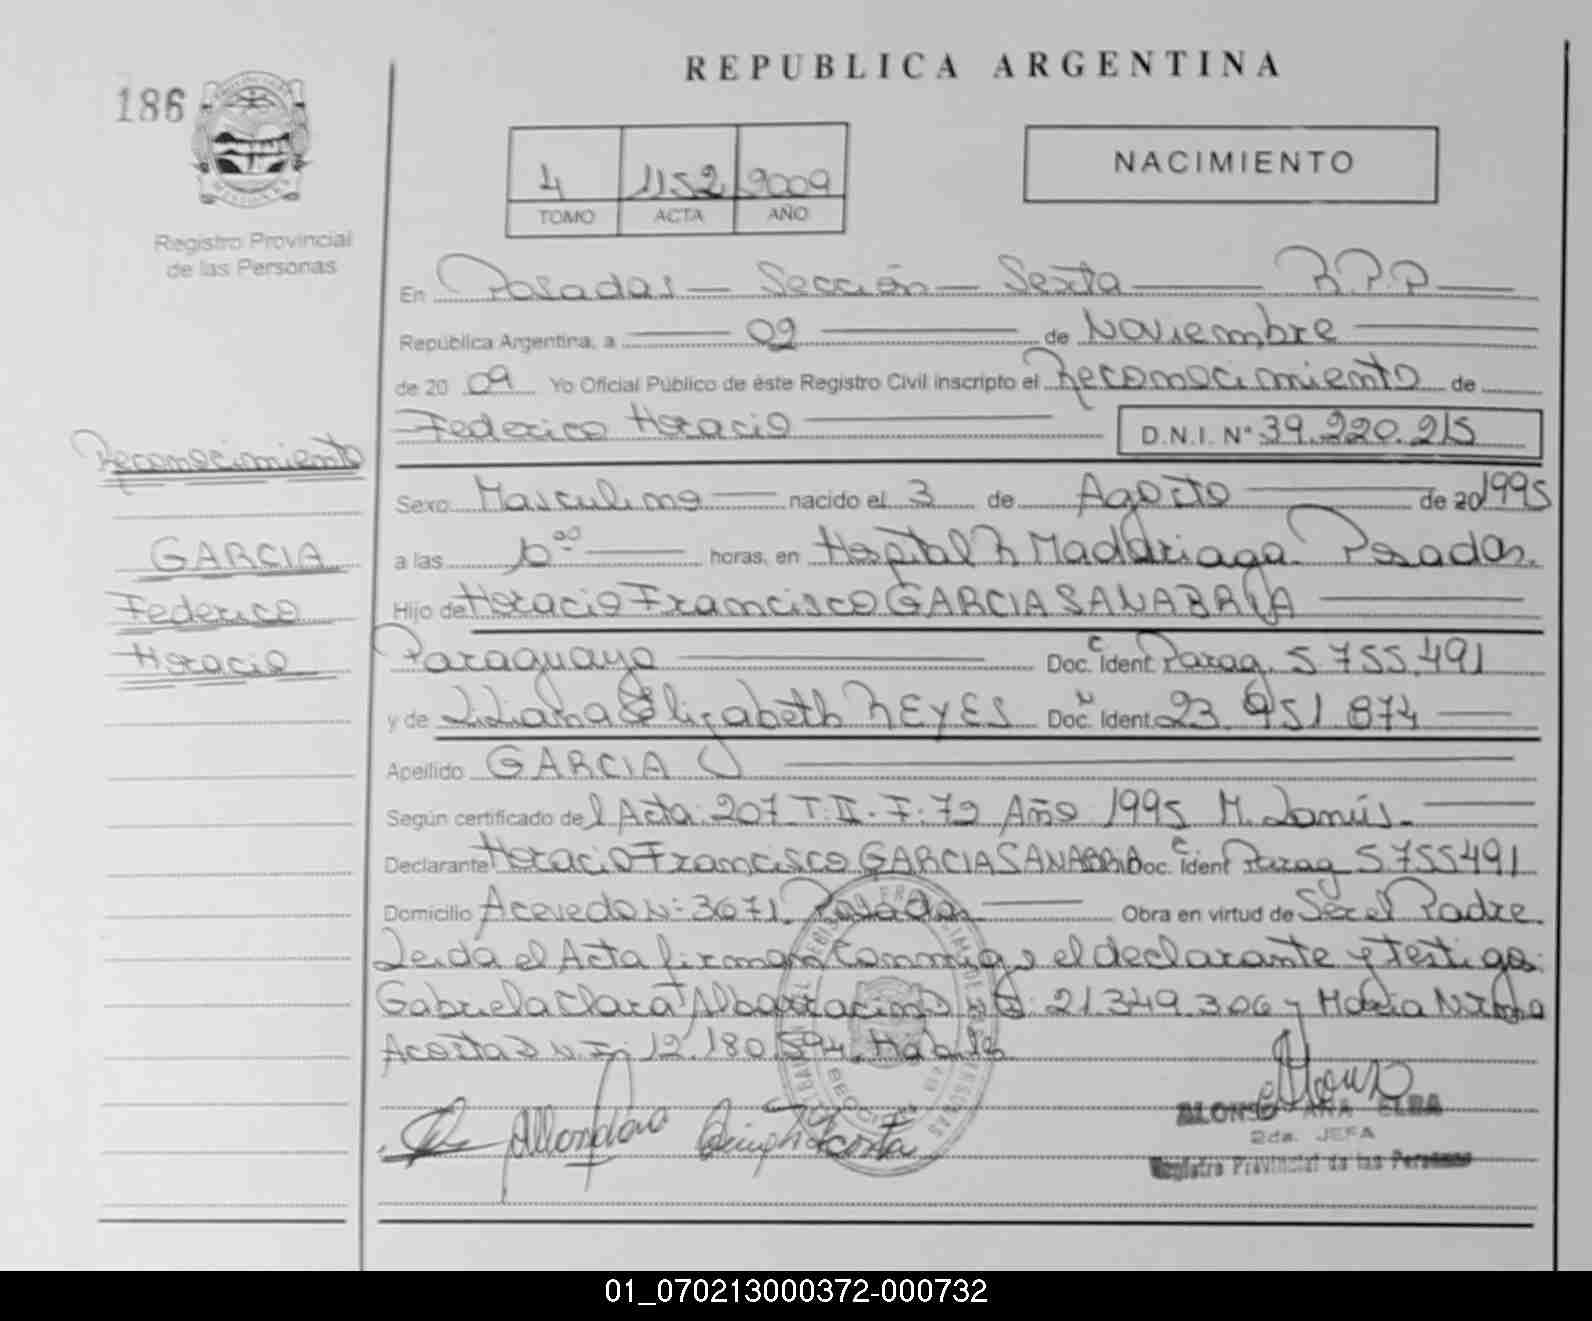 REPUBLICA ARGENTINA
186
4 1152 2009
TOMO ACTA AÑO
NACIMIENTO
Registro Provincial
de las Personas
En Posadas - Sección - Sexta R.P.P
República Argentina, a 02 de Noviembre
de 20 09 Yo Oficial Público de éste Registro Civil inscripto el Reconocimiento de
Federico Horacio D.N.I. N° 39.220.215
Reconocimiento
Sexo Masculino nacido el 3 de Agosto de 20 1995
GARCIA
a las horas, en Hospital R Madariaga Posadas.
Federico
Hijo de Horacio Francisco GARCIA SANABRIA
Horacio
Paraguayo Doc. C Ident. Parag. 5755.491
y de Liliana Elizabeth REYES Doc. N Ident. 23.951.874
Apellido GARCIA
Según certificado de l Acta: 207 T: II - F: 72 Año 1995 M. Lanús.
Declarante Horacio Francisco GARCIA SANABRIA Doc. C Ident Parag 5755491
Domicilio Acevedo N: 3671 Posadas Obra en virtud de Ser el Padre.
Leida el Acta firman Conmigo el declarante y testigos:
Gabriela Clara Albarracin 21.349.306 y Maria
Acosta D.N.I: 12.180.594. Habiles
ALONSO ANA ELBA
2da. JEFA
Registro Provincial de las Personas
01_070213000372-000732